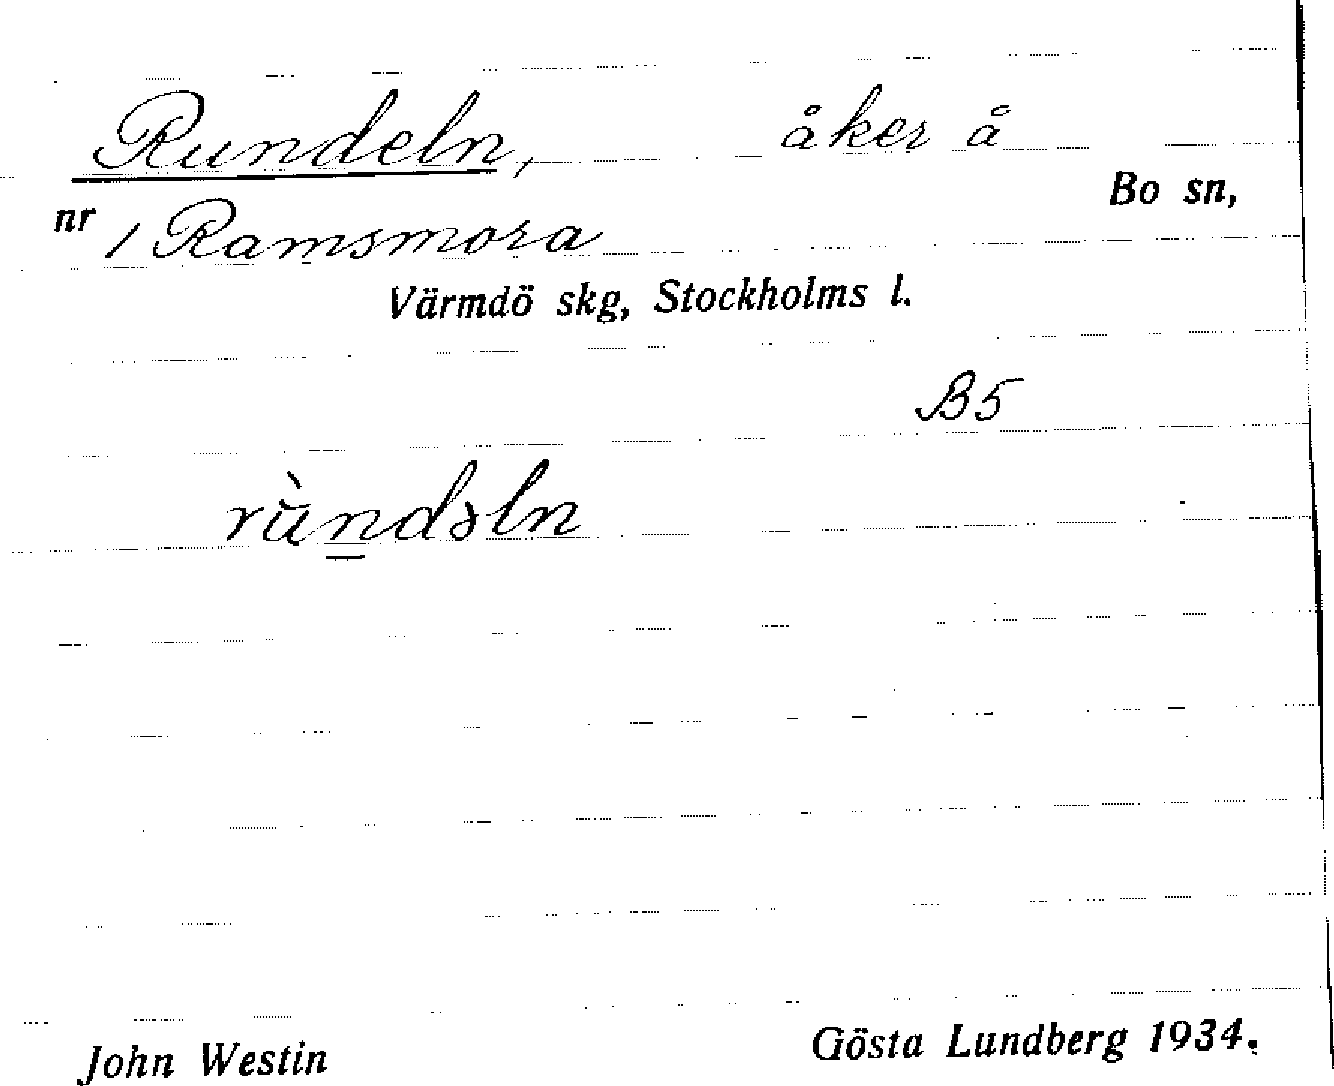 Rundeln, åker å
Bo sn,
nr 1 Ramsmora
Värmdö skg, Stockholms l.
B5
rùndəln
John Westin Gösta Lundberg 1934.